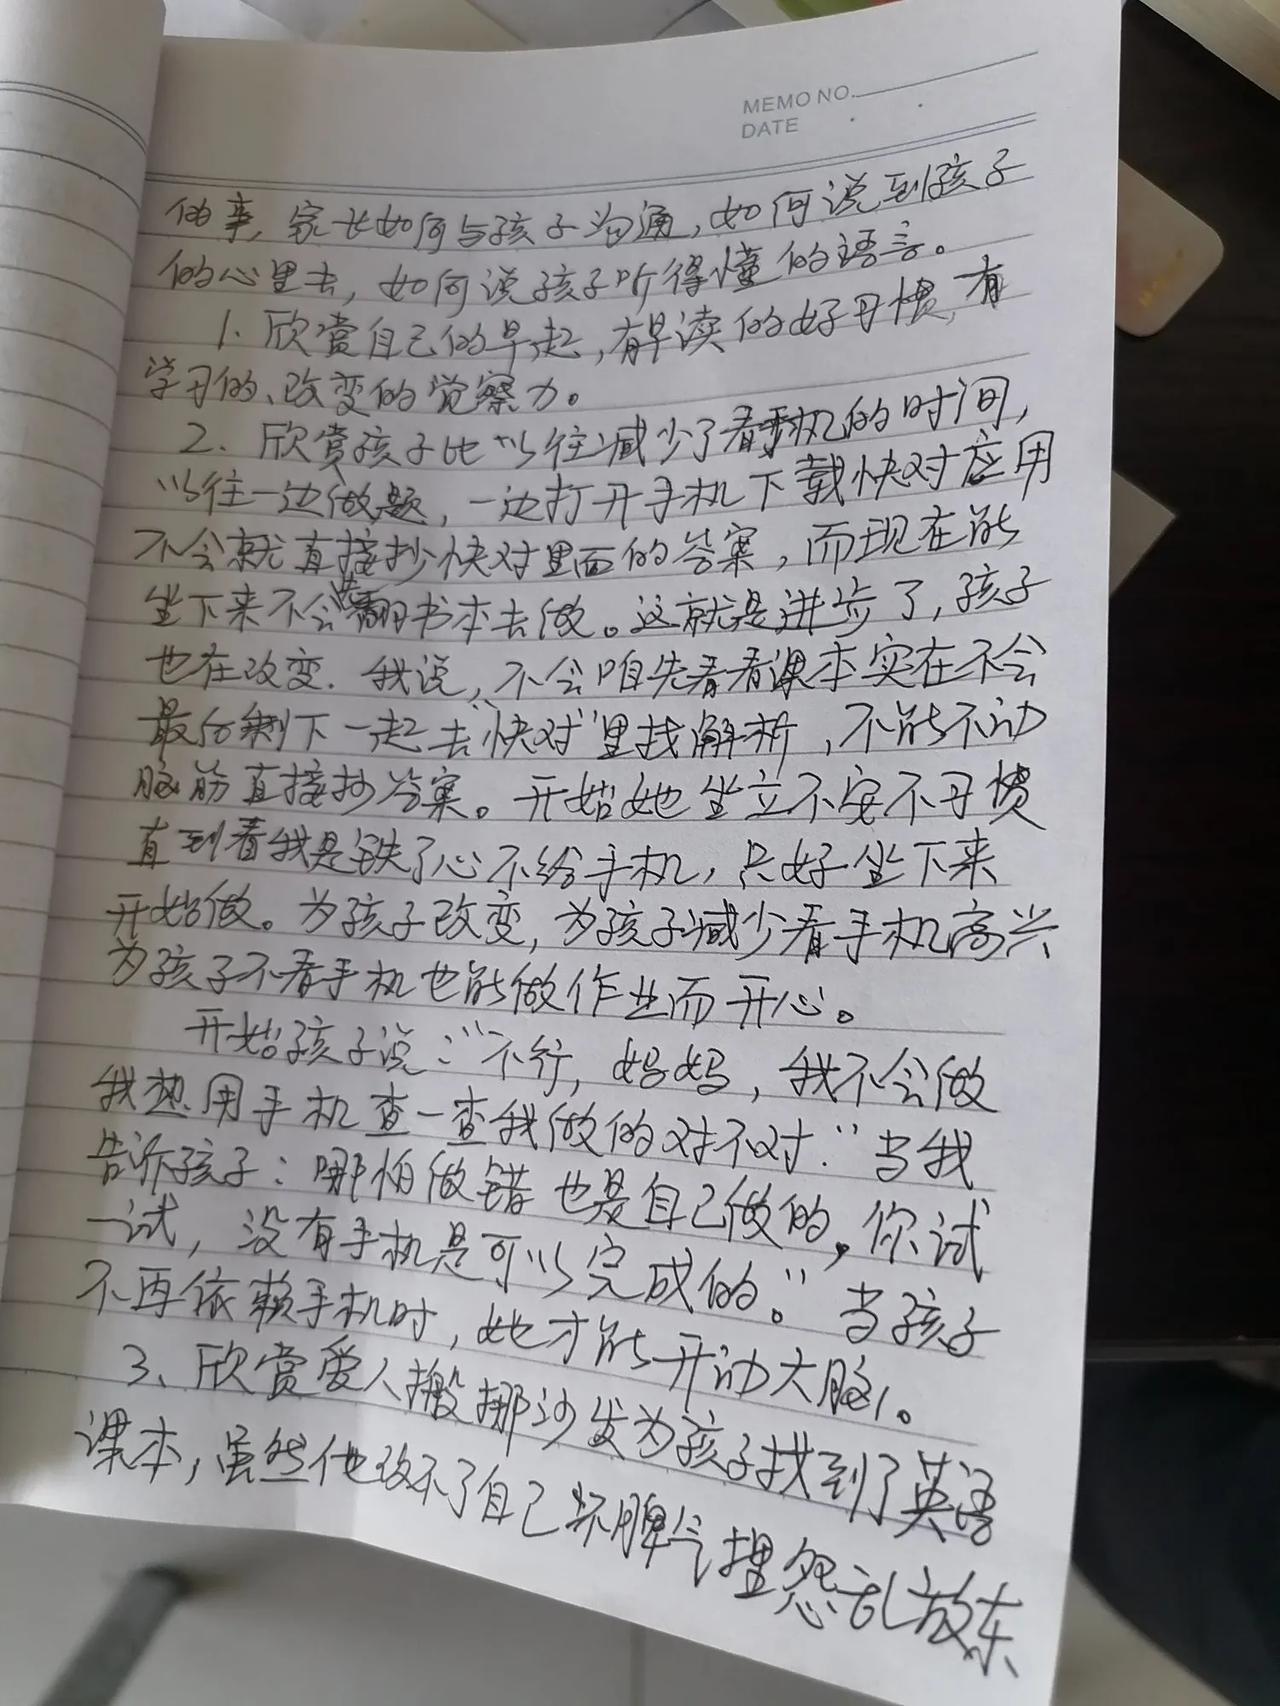 MEMO NO.
DATE
的事，家长如何与孩子沟通，如何说到孩子
的心里去，如何说孩子听得懂的语言。
1. 欣赏自己的早起，有早读的好习惯，有
学习的、改变的觉察力。
2、欣赏孩子比以往减少了看手机的时间，
以往一边做题，一边打开手机下载快对应用
不会就直接抄快对里面的答案，而现在能
坐下来不会翻书本去做。这就是进步了，孩子
也在改变. 我说，不会咱先看看课本实在不会
最后剩下一起去"快对"里找解析，不能不动
脑筋直接抄答案。开始她坐立不安不习惯
直到看我是铁了心不给手机，只好坐下来
开始做。为孩子改变，为孩子减少看手机高兴
为孩子不看手机也能做作业而开心。
开始孩子说："不行，妈妈，我不会做
我想用手机查一查我做的对不对." 当我
告诉孩子：哪怕做错也是自己做的，你试
一试，没有手机是可以完成的。" 当孩子
不再依赖手机时，她才能开动大脑。
3、欣赏爱人搬挪沙发为孩子找到了英语
课本，虽然他改不了自己坏脾气埋怨乱放东